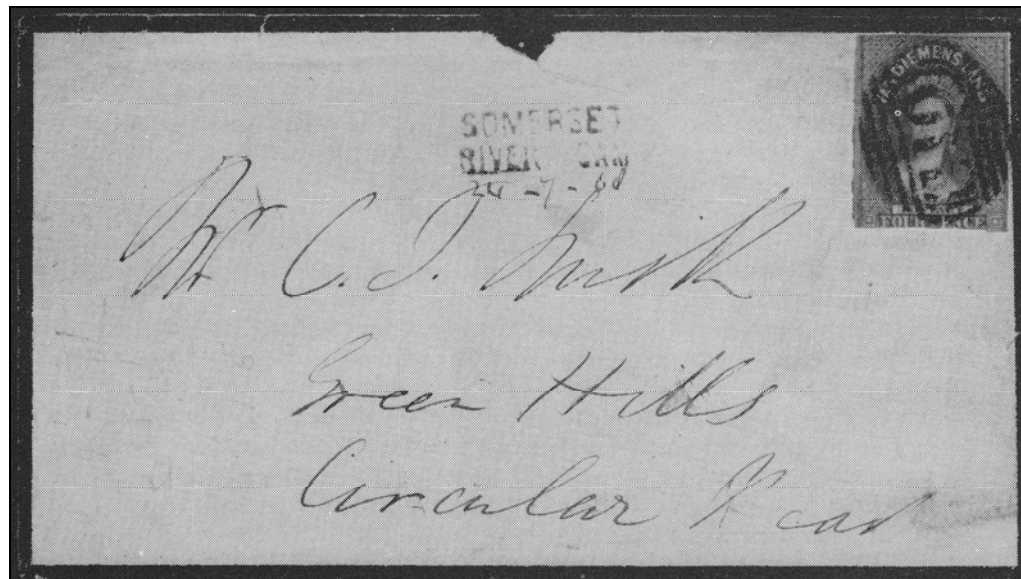 VAN DIEMENS LAND
FOUR PENCE
SOMERSET
RIVER CAM
24-7-60
Mr C. J. Smith
Green Hills
Circular Head